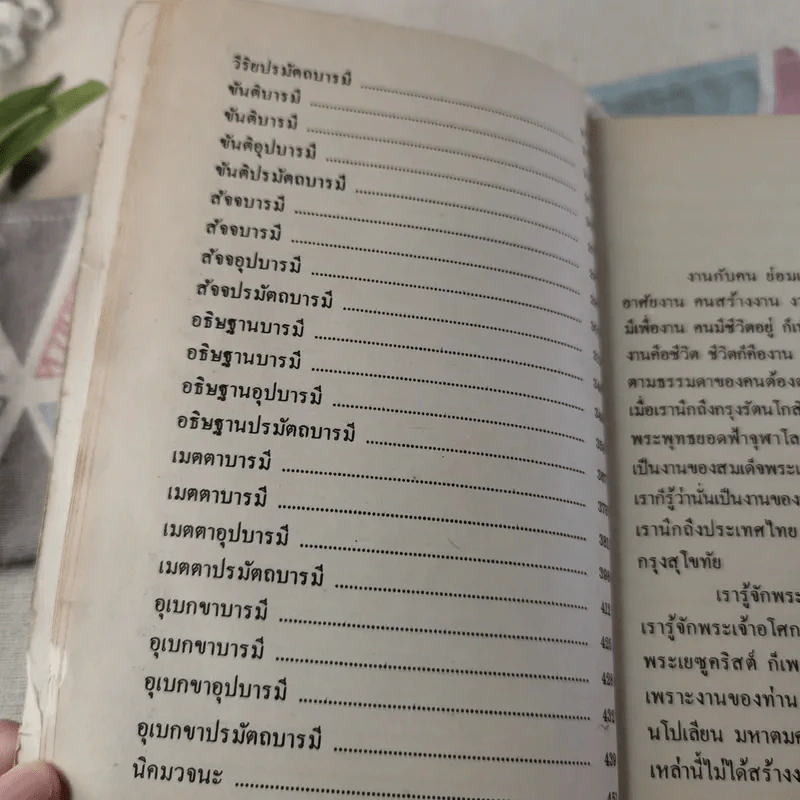 วีริยปรมัตถบารมี
ขันติบารมี
ขันติบารมี
ขันติอุปบารมี
ขันติปรมัตถบารมี
สัจจบารมี
สัจจบารมี
สัจจอุปบารมี
สัจจปรมัตถบารมี
อธิษฐานบารมี
อธิษฐานบารมี
อธิษฐานอุปบารมี
อธิษฐานปรมัตถบารมี
เมตตาบารมี
เมตตาบารมี
เมตตาอุปบารมี ๓๘๑
เมตตาปรมัตถบารมี ๓๙๘
อุเบกขาบารมี ๔๑๑
อุเบกขาบารมี ๔๒๕
อุเบกขาอุปบารมี ๔๒๘
อุเบกขาปรมัตถบารมี ๔๓๒
นิคมวจนะ ๔๓๙
งานกับคน ย่อม
อาศัยงาน คนสร้างงาน
มีเพื่องาน คนมีชีวิตอยู่
งานคือชีวิต ชีวิตก็คืองาน
ตามธรรมดาของคนต้อง
เมื่อเรานึกถึงกรุงรัตนโกสิ
พระพุทธยอดฟ้าจุฬาโล
เป็นงานของสมเด็จพระ
เราก็รู้ว่านั่นเป็นงานของ
เรานึกถึงประเทศไทย
กรุงสุโขทัย
เรารู้จักพระ
เรารู้จักพระเจ้าอโศก
พระเยซูคริสต์ ก็เพ
เพราะงานของท่าน
นโปเลียน มหาตมค
เหล่านี้ไม่ได้สร้าง